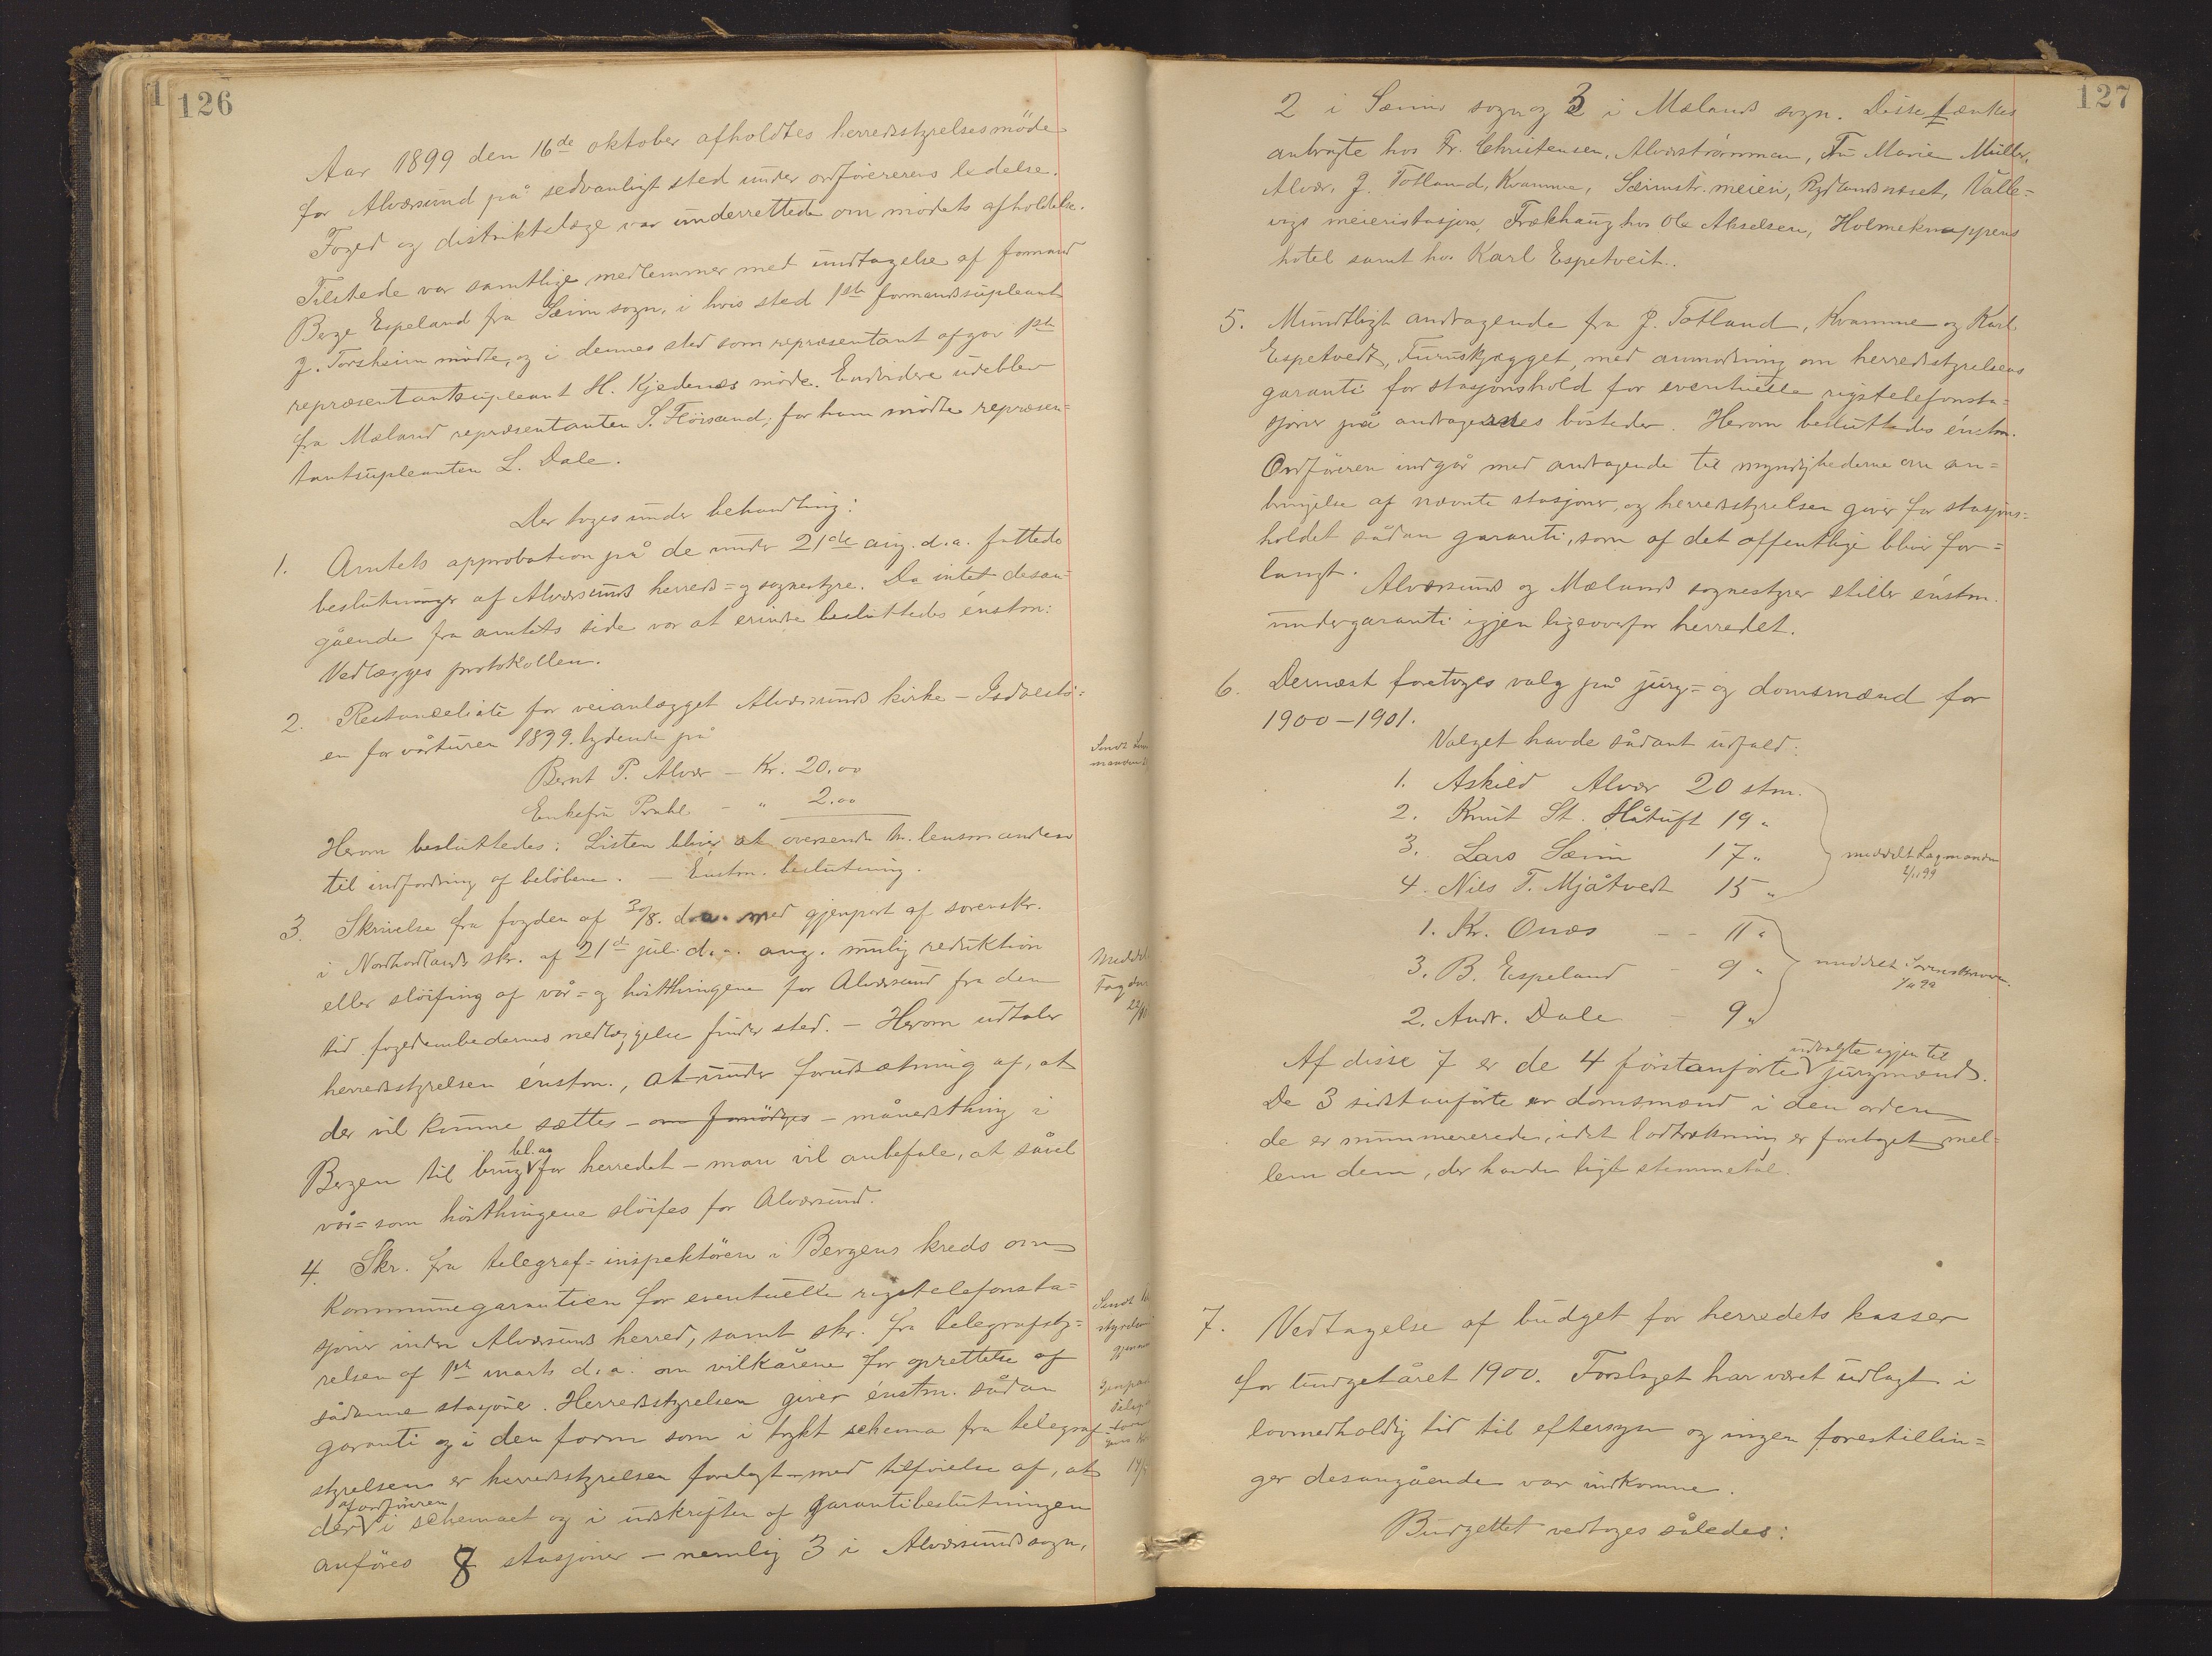 126
Aar 1899 den 16de oktober afholdtes herredsstyrelsesmöde
for Alværsund på sedvanligt sted under ordförerens ledelse.
Foged og distriktslæge var underrettede om mödets afholdelse.
Tilstede var samtlige medlemmer med undtagelse af formand
Berge Espeland fra Sæim sogn, i hvis sted 1ste formandsupleant
J. Torsheim mödte, og i dennes sted som repræsentant afgav 1ste
repræsentantsupleant H. Kjedenæs möde. Endvidere udeblev
fra Mæland repræsentanten S. Flöisand; for ham mödte repræsen=
tantsupleanten L. Dale.
Der toges under behandling:
1. Amtets approbation på de under 21de aug. d.a. fattede
beslutninger af Alværsunds herreds= og sognestyre. Da intet desan=
gående fra amtets side var at erindre besluttedes énstm:
Vedlægges protokollen.
2. Restanceliste for veianlægget Alværsunds kirke – Isdvestö=
en for vårturen 1899. lydende på
Bernt P. Alvær – Kr. 20.00
Enkefru Prahl – " 2.00
Herom besluttedes: Listen bliver at oversende hr. lensmanden
til indfordring af belöbene. – Enstm. beslutning.
Sendt Lens
manden
3. Skrivelse fra fogden af 30/8. d.a. med gjenpart af sorenskr.
i Nordhordlands skr. af 21de juli d.a. ang. mulig reduktion
eller slöifing af vår= og hösttingene for Alværsund fra den
tid fogedembedernes nedlæggelse finder sted. – Herom udtaler
herredsstyrelsen énstm., at under forudsætning af, at
der vil kunne sættes – om fornödiges – månedsthing i
Bergen til brug bl.a. for herredet – man vil anbefale, at såvel
vår= som hösthingene slöifes for Alværsund.
Meddelt
Fogden
4. Skr. fra telegraf=inspektören i Bergens kreds om
Kommunegarantien for eventuelle rigstelefonsta=
sjoner inden Alværsunds herred, samt skr. fra telegrafsty=
relsen af 1ste marts d.a. om vilkårene for oprettelse af
sådanne stasjoner. Herredsstyrelsen giver énstm. sådan
garanti og i den form som i trykt schema fra telegraf=
styrelsen er herredsstyrelsen forelagt – med tilföielse af, at
der af ordföreren i schemaet og i udskriften af garantibeslutningen
anföres 8 stasjoner – nemlig 3 i Alværsunds sogn,
Sendt
styrelsen
gjennem
127
2 i Sæims sogn og 3 i Mælands sogn. Disse tænkes
anbragte hos Fr. Christensen, Alværströmmen, Fru Marie Müller,
Alvær, J. Totland, Kvamme, Sæimstr. meieri, Rydlandsnæset, Valle=
vigs meieristasjon, Frækhaug hos Ole Akselsen, Holmeknappens
hotel samt hos Karl Espetveit.
5. Mundtligt andragende fra J. Totland, Kvamme og Karl
Espetvedt, Furuskjægget, med anmodning om herredsstyrelsens
garanti for stasjonshold for eventuelle rigstelefonsta=
sjoner på andragernes bosteder. Herom besluttedes énstm.
Ordföreren indgår med andragende til myndighederne om an=
bringelse af nævnte stasjoner, og herredsstyrelsen giver for stasjons=
holdet sådan garanti, som af det offentlige blir for=
langt. Alværsunds og Mælands sognestyrer stiller énstm.
undergaranti igjen ligeoverfor herredet.
6. Dernæst foretoges valg på jury= og domsmænd for
1900–1901.
Valget havde sådant udfald:
1. Askild Alvær 20 stm.
2. Knut St. Håtuft 19 "
3. Lars Sæim 17 "
4. Nils T. Mjåtvedt 15 "
meddelt Lagmanden
1/11 99
1. Kr. Onæs – – 11 "
3. B. Espeland – 9 "
2. Andr. Dale – 9 "
meddelt Sorenskriveren.
1/11 99
Af disse 7 er de 4 förstanförte udvalgte igjen til jurymænd.
De 3 sidstanförte er domsmænd i den orden
de er nummererede, idet lodtrækning er foretaget mel=
lem dem, der havde ligt stemmetal.
7. Vedtagelse af budget for herredets kasser
for budgetåret 1900. Forslaget har været udlagt i
lovmedholdig tid til eftersyn og ingen forestillin=
ger desangående var indkomne.
Budgettet vedtoges således: